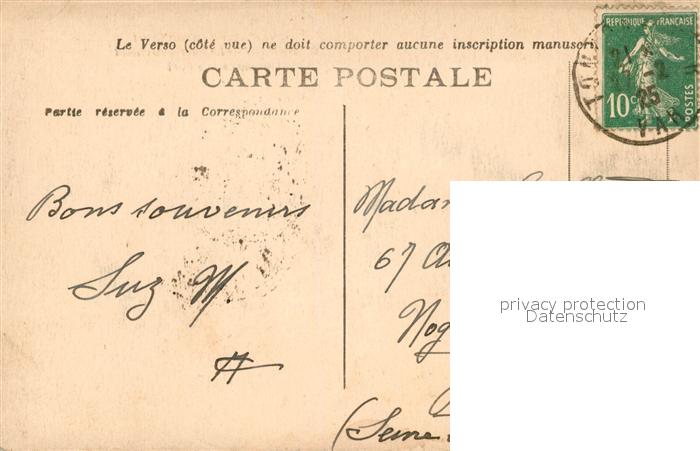 Le Verso (côté vue) ne doit comporter aucune inscription manuscri
CARTE POSTALE
Partie réservée à la Correspondance
RÉPUBLIQUE FRANÇAISE
10c
POSTES
TOUL
21
-2
25
VAR
Bons souvenirs
Suz M.
Madam
67 A
Nog
(Seine
privacy protection
Datenschutz